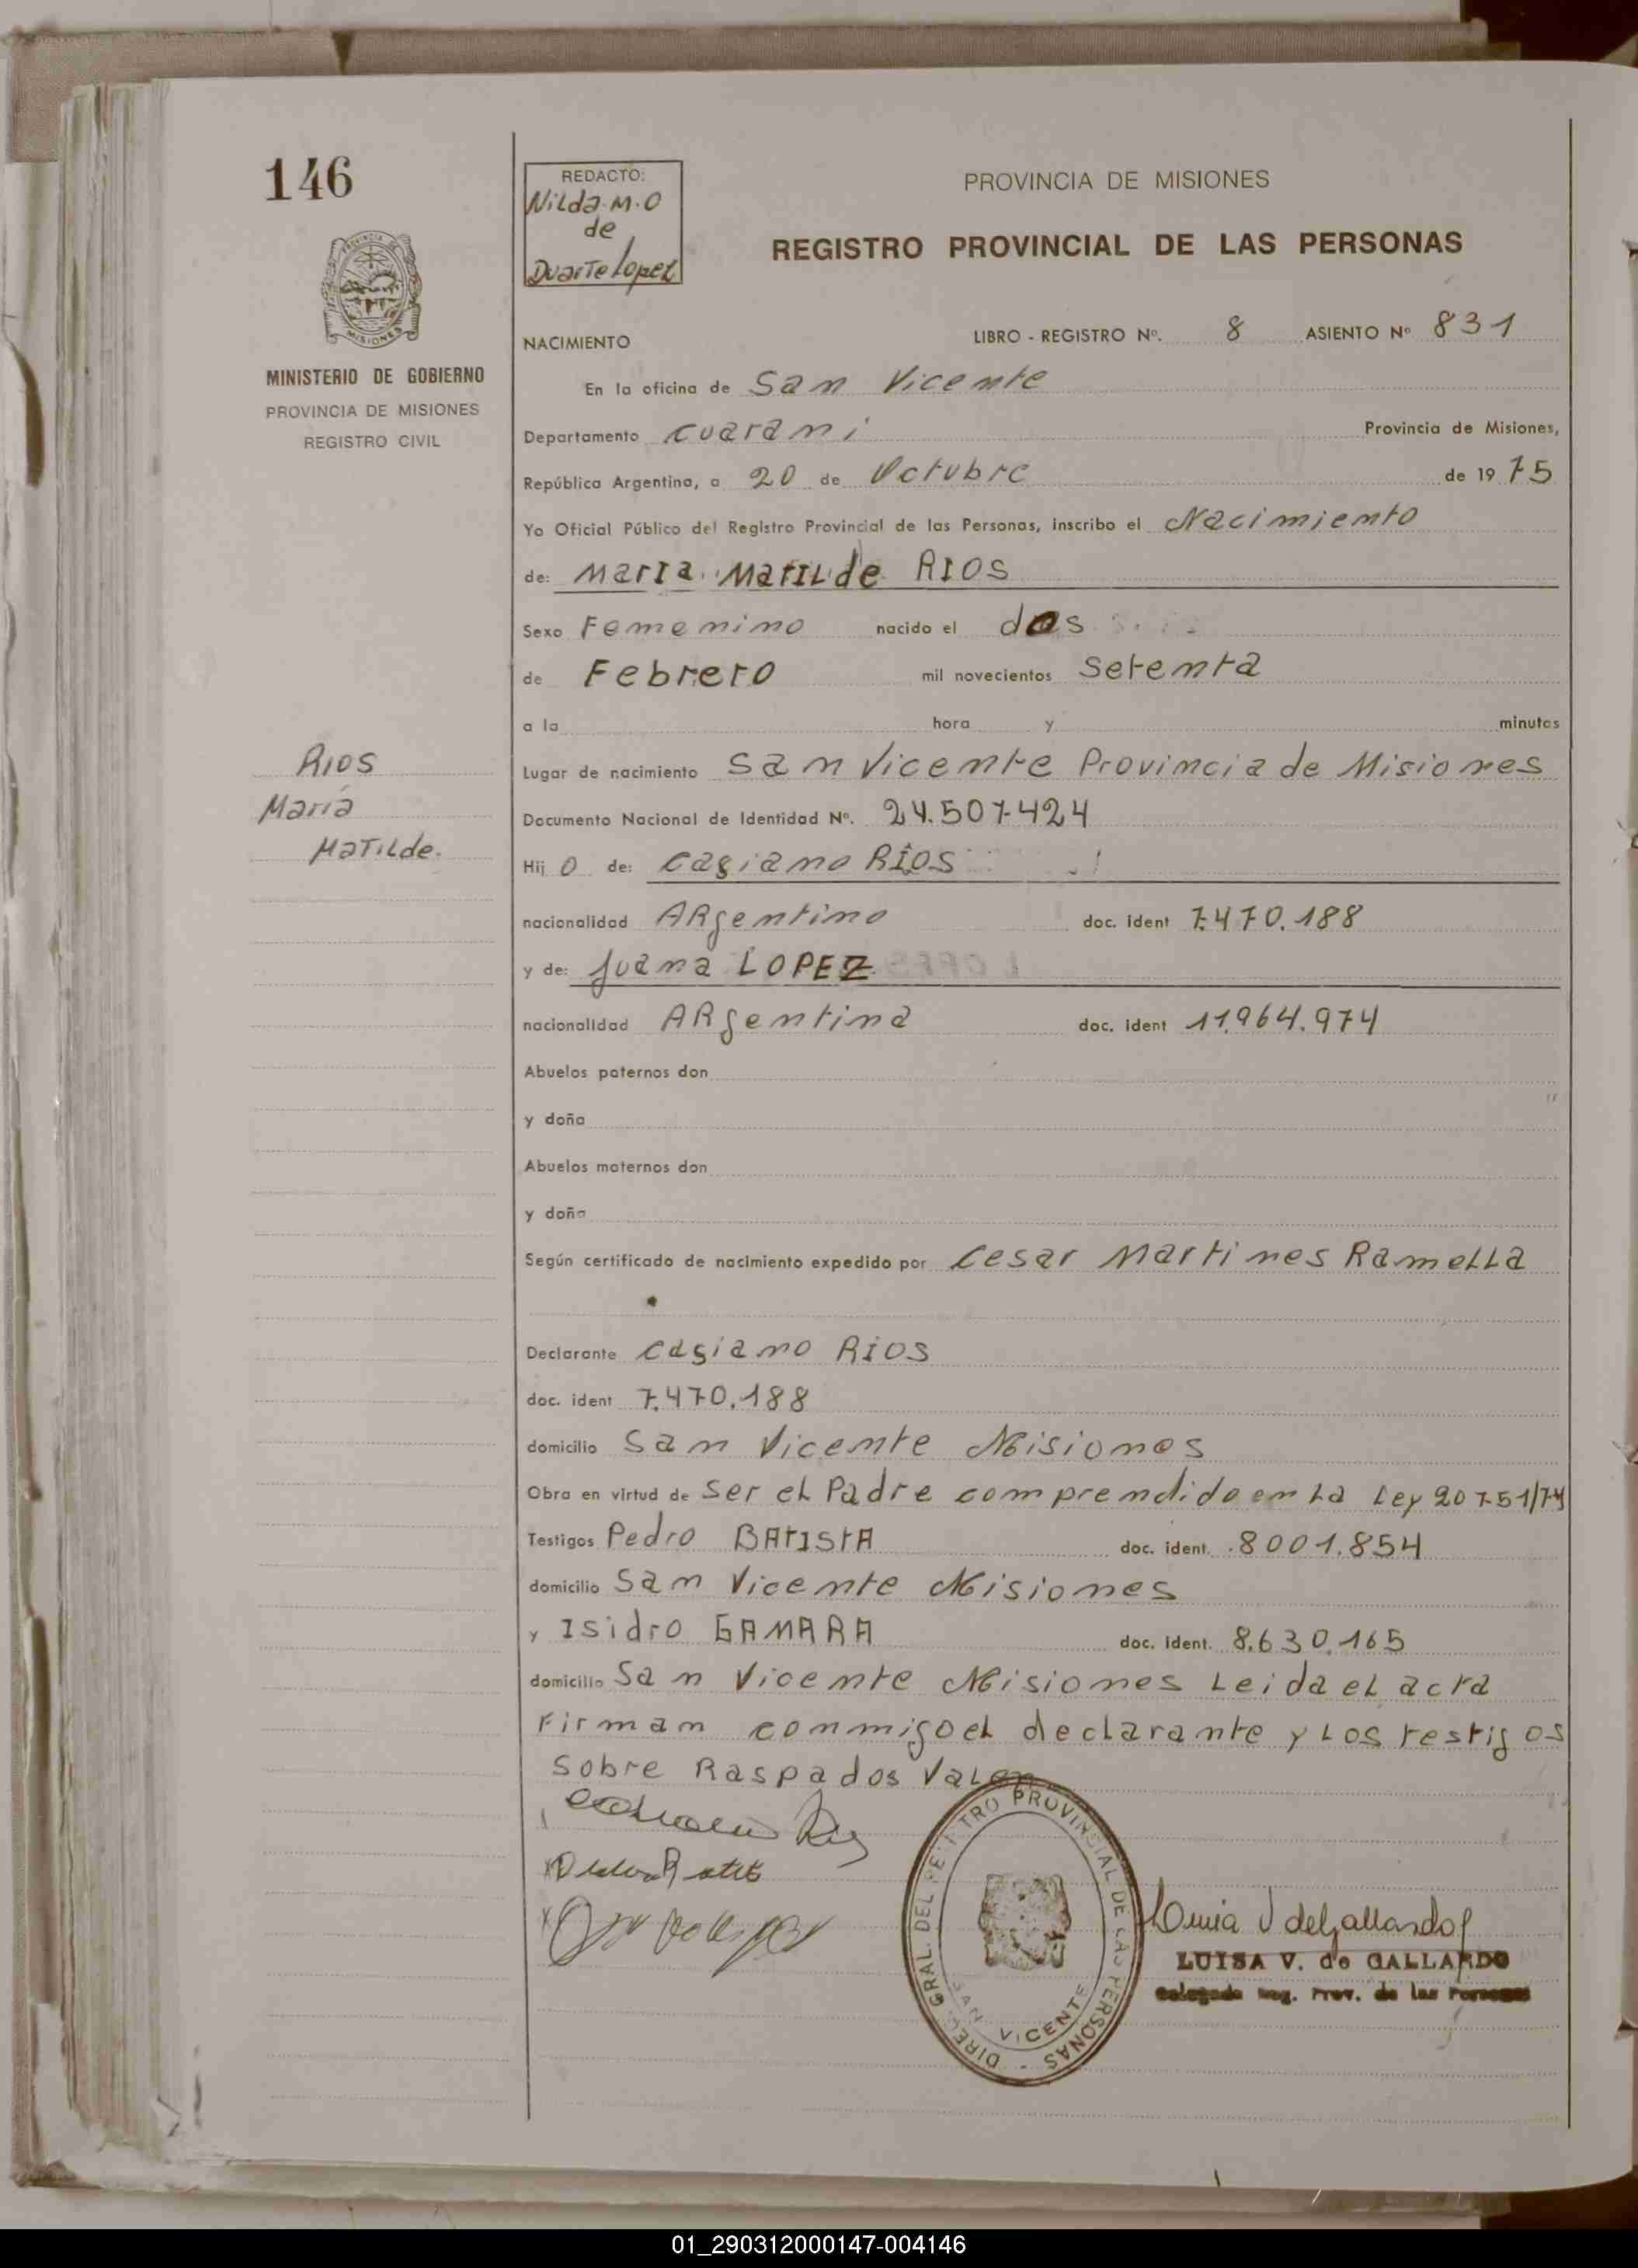 146
REDACTO:
Nilda M.O
de
Duarte Lopez
PROVINCIA DE MISIONES
REGISTRO PROVINCIAL DE LAS PERSONAS
PROVINCIA DE MISIONES
MINISTERIO DE GOBIERNO
PROVINCIA DE MISIONES
REGISTRO CIVIL
NACIMIENTO LIBRO - REGISTRO Nº. 8 ASIENTO Nº 831
En la oficina de San Vicente
Departamento Cuarani Provincia de Misiones,
República Argentina, a 20 de Octubre de 1975
Yo Oficial Público del Registro Provincial de las Personas, inscribo el Nacimiento
de: Maria Matilde RIOS
Sexo Femenino nacido el dos
de Febrero mil novecientos Setenta
a la hora y minutos
Lugar de nacimiento San Vicente Provincia de Misiones
Documento Nacional de Identidad Nº. 24.507.424
Hij o de: Casiano RÍOS
nacionalidad ARgentino doc. ident 7.470.188
y de: Juana LOPEZ
nacionalidad ARgentina doc. ident 11.964.974
Abuelos paternos don
y doña
Abuelos maternos don
y doña
Según certificado de nacimiento expedido por Cesar Martines Ramella
Declarante Casiano RíOS
doc. ident 7.470.188
domicilio San Vicente Misiones
Obra en virtud de Ser el Padre comprendido en la Ley 20751/74
Testigos Pedro BATISTA doc. ident. 8001.854
domicilio San Vicente Misiones
y Isidro GAMARA doc. ident. 8.630.165
domicilio San Vicente Misiones Leida el acta
Firman conmigo el declarante y los testigos
Sobre Raspados Valen
RIOS
María
Matilde.
DIREC. GRAL. DEL REGISTRO PROVINCIAL DE LAS PERSONAS -
SAN VICENTE
Luisa V de Gallardo
LUISA V. de GALLARDO
Delegada Reg. Prov. de las Personas
01_290312000147-004146